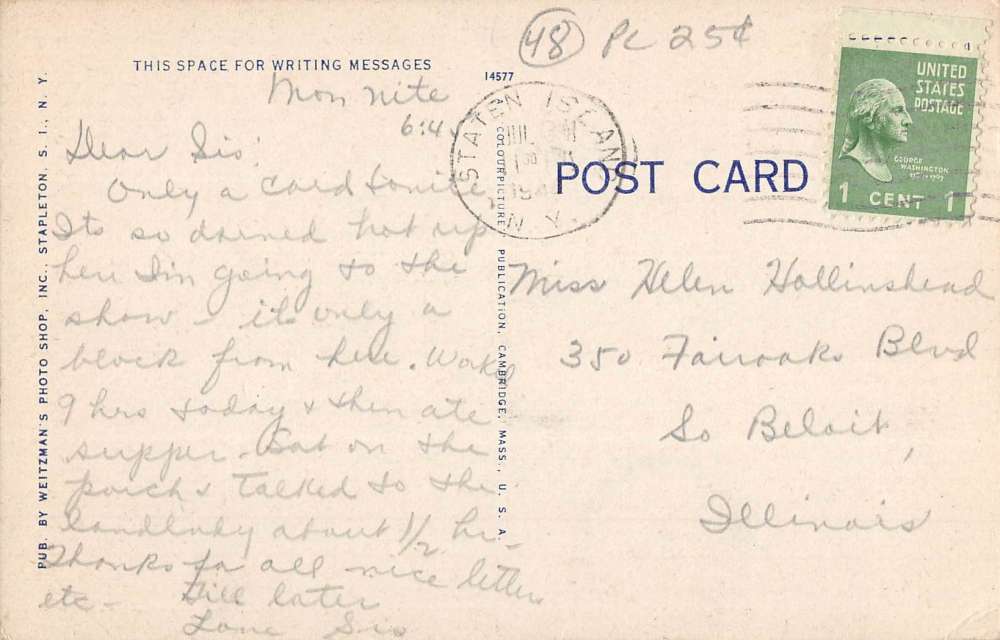 48 PC 25¢
THIS SPACE FOR WRITING MESSAGES
14577
Mon nite
6:4
Dear Sis:
Only a card tonite
Its so darned hot up
here I'm going to the
show - its only a
block from here. Worked
9 hrs today & then ate
supper. Sat on the
porch & talked to the
landlady about 1/2 hr -
Thanks for all nice letters
etc - Till later
Love Sis
PUB. BY WEITZMAN'S PHOTO SHOP, INC. STAPLETON, S. I., N. Y.
COLOURPICTURE PUBLICATION, CAMBRIDGE, MASS., U. S. A.
STATEN ISLAND
JUL
N.Y.
POST CARD
UNITED
STATES
POSTAGE
GEORGE
WASHINGTON
1 CENT 1
Miss Helen Hollinshead
350 Fairoaks Blvd
So Beloit,
Illinois